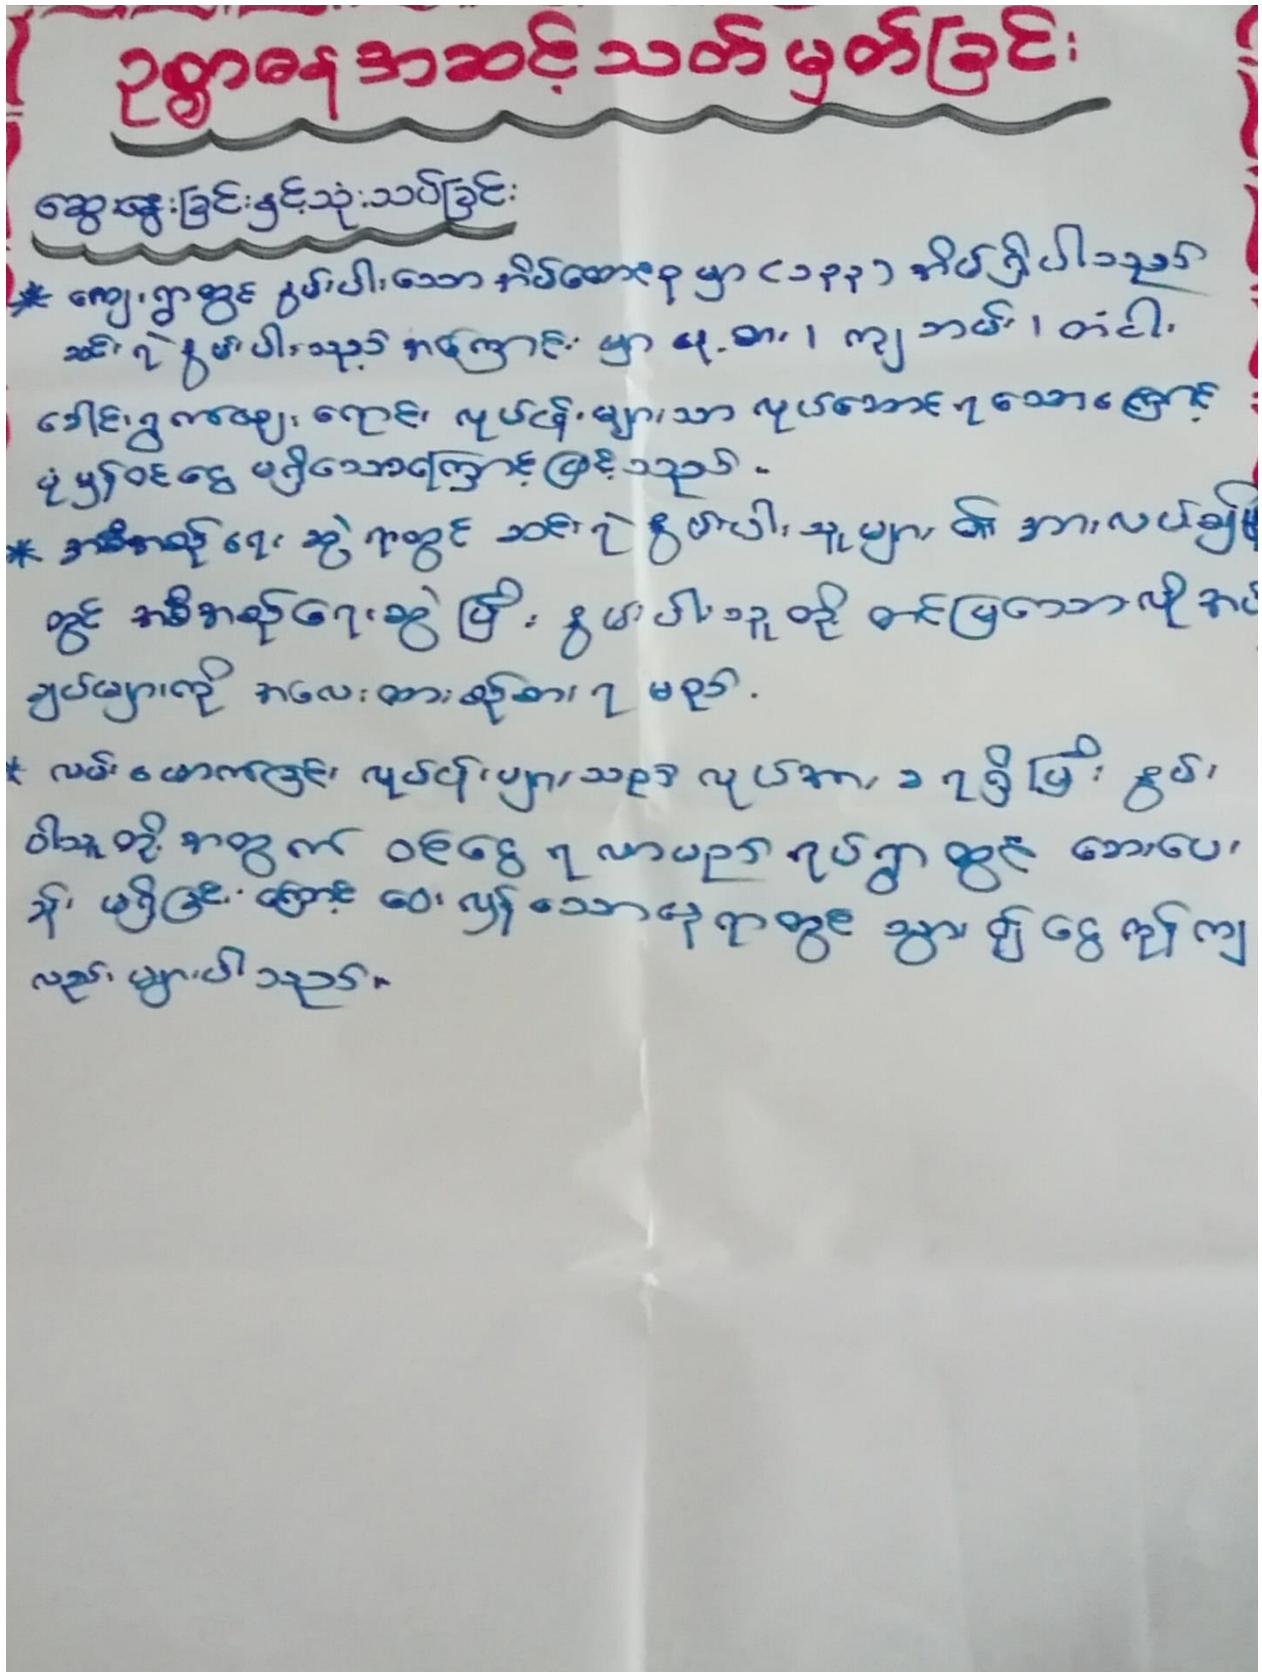 ဥစ္စာဓနအဆင့်သတ်မှတ်ခြင်း
ဆွေးနွေးခြင်းနှင့်သုံးသပ်ခြင်း
* ကျေးရွာတွင် နွမ်းပါးသော အိမ်ထောင်စုမှာ (၁၃၃) အိမ်ရှိပါသည်
ဆင်းရဲနွမ်းပါးသည့် အကြောင်းမှာ နေ့စား၊ ကျဘမ်း၊ တံငါ၊
ခေါင်းရွက်ဗျပ်ရောင်း လုပ်ငန်းများသာ လုပ်ဆောင်ရသောကြောင့်
ပုံမှန်ဝင်ငွေ မရှိသောကြောင့်ဖြစ်သည်။
* အစီအစဉ်ရေးဆွဲရာတွင် ဆင်းရဲနွမ်းပါးသူများ၏ အားလပ်ချိန်
တွင် အစီအစဉ်ရေးဆွဲပြီး နွမ်းပါးသူတို့ တင်ပြသောလိုအပ်
ချက်များကို အလေးထားစဉ်းစားရမည်။
* လမ်းဖောက်ခြင်း လုပ်ငန်းများသည် လုပ်အားခရရှိပြီး နွမ်း
ပါးသူတို့အတွက် ဝင်ငွေရလာမည် ရပ်ရွာတွင် ဆေးပေး
ခန်း မရှိခြင်းကြောင့် ဝေးလှန်သောနေရာတွင် သွား၍ ငွေကုန်ကျ
လည်းများပါသည်။